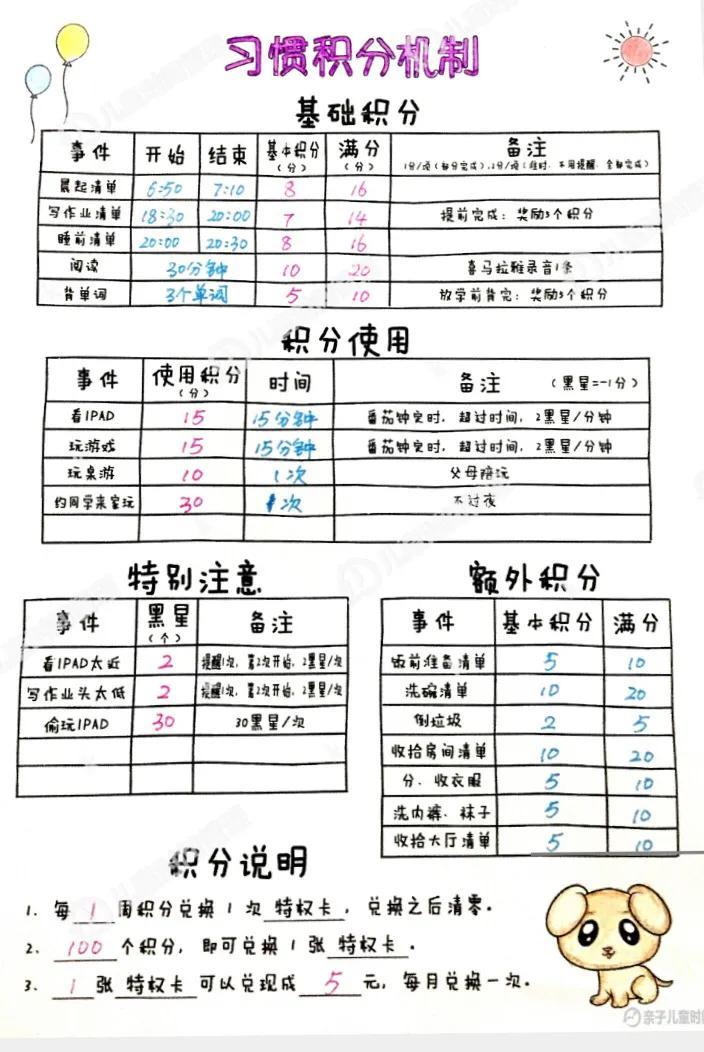 习惯积分机制
基础积分
事件 开始 结束 基本积分(分) 满分(分) 备注
1分/项(部分完成),2分/项(准时、不用提醒、全部完成)
晨起清单 6:50 7:10 8 16
写作业清单 18:30 20:00 7 14 提前完成：奖励3个积分
睡前清单 20:00 20:30 8 16
阅读 30分钟 10 20 喜马拉雅录音1条
背单词 3个单词 5 10 放学前背完：奖励3个积分
积分使用
事件 使用积分(分) 时间 备注 (黑星=-1分)
看IPAD 15 15分钟 番茄钟定时，超过时间，2黑星/分钟
玩游戏 15 15分钟 番茄钟定时，超过时间，2黑星/分钟
玩桌游 10 1次 父母陪玩
约同学来家玩 30 1次 不过夜
特别注意
事件 黑星(个) 备注
看IPAD太近 2 提醒1次，第2次开始，2黑星/次
写作业头太低 2 提醒1次，第2次开始，2黑星/次
偷玩IPAD 30 30黑星/次
额外积分
事件 基本积分 满分
饭前准备清单 5 10
洗碗清单 10 20
倒垃圾 2 5
收拾房间清单 10 20
分、收衣服 5 10
洗内裤、袜子 5 10
收拾大厅清单 5 10
积分说明
1. 每1周积分兑换1次特权卡，兑换之后清零。
2. 100个积分，即可兑换1张特权卡。
3. 1张特权卡可以兑现成5元，每月兑换一次。
亲子儿童时